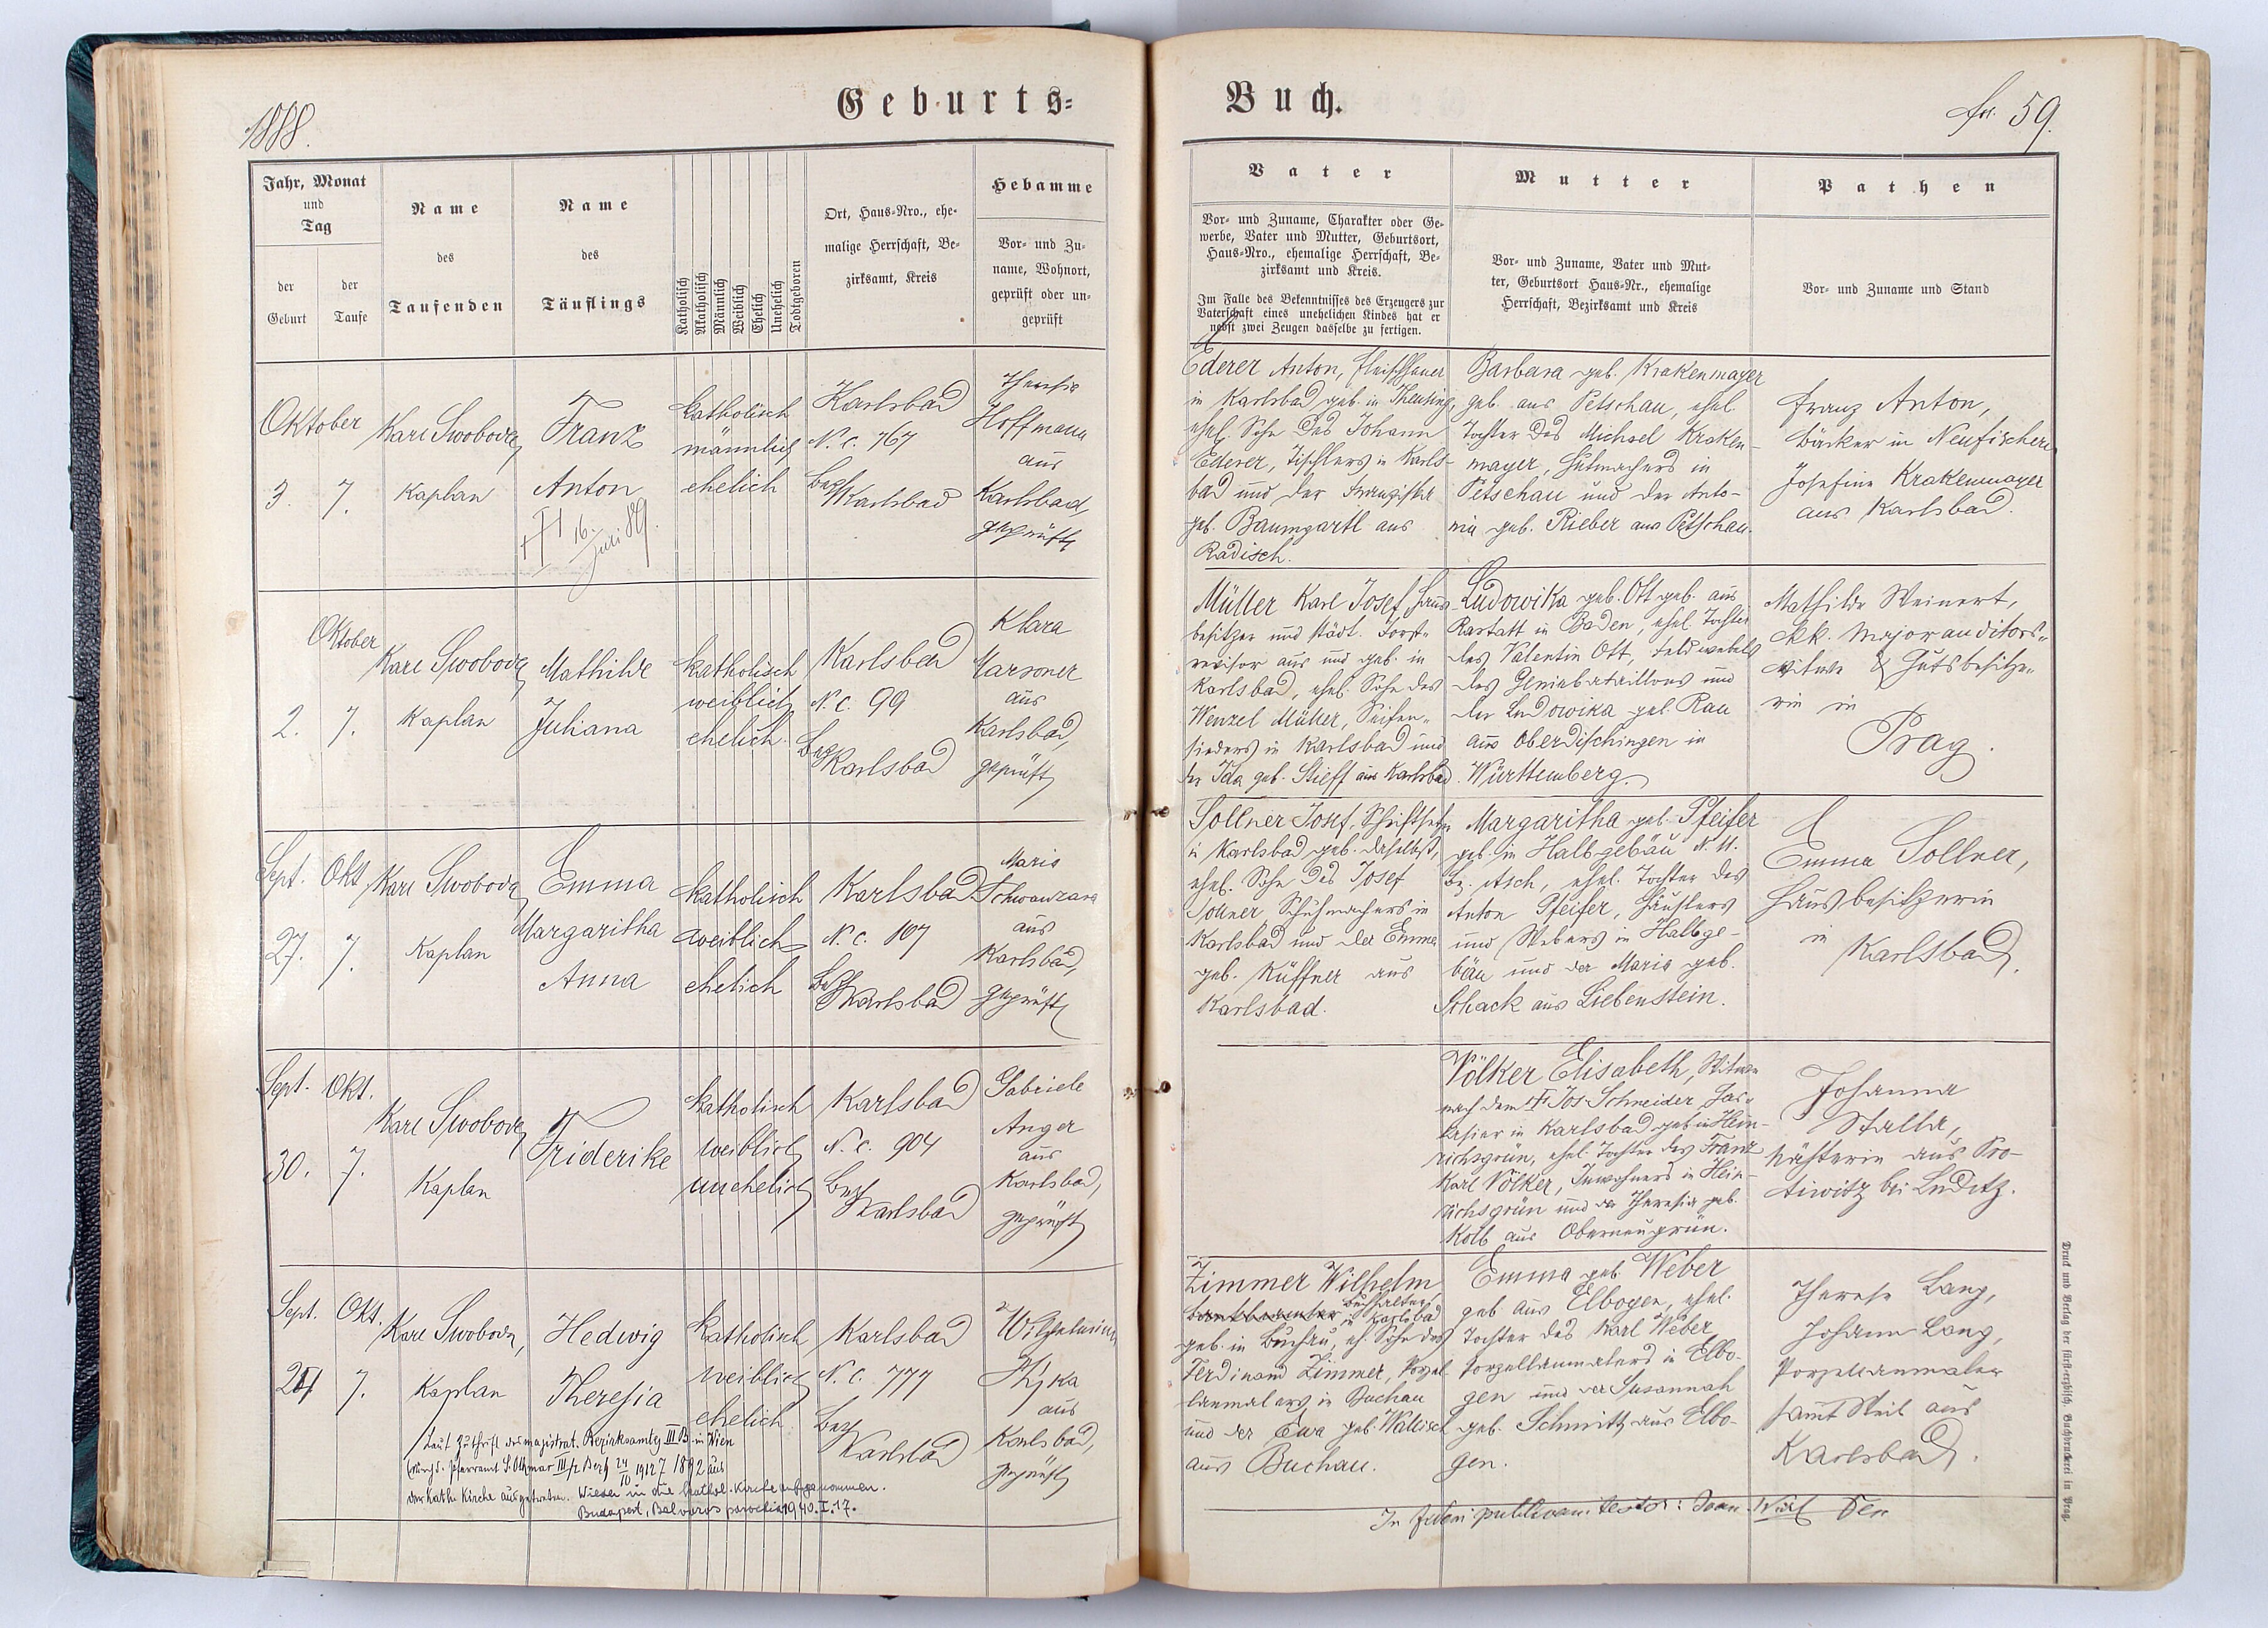 1888.
Geburts-
Buch.
fol. 59.
Jahr, Monat
und
Tag
der
Geburt
der
Taufe
Name
des
Taufenden
Name
des
Täuflings
Katholisch
Akatholisch
Männlich
Weiblich
Ehelich
Unehelich
Todtgeboren
Ort, Haus-Nro., ehe-
malige Herrschaft, Be-
zirksamt, Kreis
Hebamme
Vor- und Zu-
name, Wohnort,
geprüft oder un-
geprüft
Vater
Vor- und Zuname, Charakter oder Ge-
werbe, Vater und Mutter, Geburtsort,
Haus-Nro., ehemalige Herrschaft, Be-
zirksamt und Kreis.
Im Falle des Bekenntnisses des Erzeugers zur
Vaterschaft eines unehelichen Kindes hat er
nebst zwei Zeugen dasselbe zu fertigen.
Mutter
Vor- und Zuname, Vater und Mut-
ter, Geburtsort Haus-Nr., ehemalige
Herrschaft, Bezirksamt und Kreis
Pathen
Vor- und Zuname und Stand
Oktober
3. 7.
Karl Swoboda
Kaplan
Franz
Anton
† 16. Juni 89.
katholisch
männlich
ehelich
Karlsbad
N. c. 767
Bez. Karlsbad
Theresia
Hoffmann
aus
Karlsbad
geprüft
Ederer Anton, Fleischhauer
in Karlsbad, geb. in Theusing,
ehel. Sohn des Johann
Ederer, Tischlers in Karls-
bad und der Franziska
geb. Baumgartl aus
Radisch.
Barbara geb. Krakenmayer
geb. aus Petschau, ehel.
Tochter des Michael Kraken-
mayer, Hutmachers in
Petschau und der Anto-
nia geb. Rieber aus Petschau.
Franz Anton,
Bäcker in Neufischern
Josefine Krakenmayer
aus Karlsbad.
Oktober
2. 7.
Karl Swoboda
Kaplan
Mathilde
Juliana
katholisch
weiblich
ehelich.
Karlsbad
N. c. 99
Bez. Karlsbad
Klara
Marsoner
aus
Karlsbad,
geprüft
Müller Karl Josef, Haus-
besitzer und städt. Forst-
revisor aus und geb. in
Karlsbad, ehel. Sohn des
Wenzel Müller, Seifen-
sieders in Karlsbad und
der Ida geb. Stieff aus Karlsbad.
Ludowika geb. Ott geb. aus
Rastatt in Baden, ehel. Tochter
des Valentin Ott, Feldwebels
des Geniebataillons und
der Ludowika geb. Rau
aus Oberdischingen in
Württemberg.
Mathilde Steinert,
kk. Majorauditors-
witwe & Gutsbesitze-
rin in
Prag.
Sept. Okt.
27. 7.
Karl Swoboda
Kaplan
Emma
Margaritha
Anna
katholisch
weiblich
ehelich
Karlsbad
N. c. 107
Bez. Karlsbad
Maria
Schwanzara
aus
Karlsbad,
geprüft
Sollner Josef, Schriftsetzer
in Karlsbad geb. daselbst,
ehel. Sohn des Josef
Sollner, Schuhmachers in
Karlsbad und der Emma
geb. Küffner aus
Karlsbad.
Margaritha geb. Pfeifer
geb. in Halbgebäu N. 11.
Bz. Asch, ehel. Tochter des
Anton Pfeifer, Häuslers
und Webers in Halbge-
bäu und der Maria geb.
Schack aus Liebenstein.
Emma Sollner,
Hausbesitzerin
in
Karlsbad.
Sept. Okt.
30. 7.
Karl Swoboda
Kaplan
Friderike
katholisch
weiblich
unehelich
Karlsbad
N. c. 904
Bez. Karlsbad
Gabriele
Anger
aus
Karlsbad,
geprüft
Völker Elisabeth, Witwe
nach dem † Jos. Schneider,
in Karlsbad geb. in Hein-
richsgrün, ehel. Tochter des Franz
Karl Völker, Inwohners in Hein-
richsgrün und der Theresia geb.
Kolb aus Oberneugrün.
Johanna
Stalla,
Nähterin aus Pro-
tiwitz bei Luditz.
Sept. Okt.
7.
Karl Swoboda,
Kaplan
Hedwig
Theresia
katholisch
weiblich
ehelich
Karlsbad
N. C. 777
Bez. Karlsbad
Wilhelmine
Kyka
aus
Karlsbad,
geprüft
Zimmer Wilhelm
Buchhalter in Karlsbad
geb. in Buchau, eh. Sohn des
Ferdinand Zimmer, Porzel-
lanmalers in Buchau
und der Eva geb. Wallisch
aus Buchau.
Emma geb. Weber
geb. aus Elbogen, ehel.
Tochter des Karl Weber
Porzellanmalers in Elbo-
gen und der Susannah
geb. Schmitt aus Elbo-
gen.
Therese Lang,
Johann Lang,
Porzellanmaler
sammt Weib aus
Karlsbad.
Laut Zuschrift des magistrat. Bezirksamtes III B. in Wien
der kath. Kirche ausgetreten. Wieder in die kathol. Kirche aufgenommen.
Budapest, 1940. I. 17.
In fidem publicam testor: Joan.
Druck und Verlag der fürst-erzbisch. Buchdruckerei in Prag.